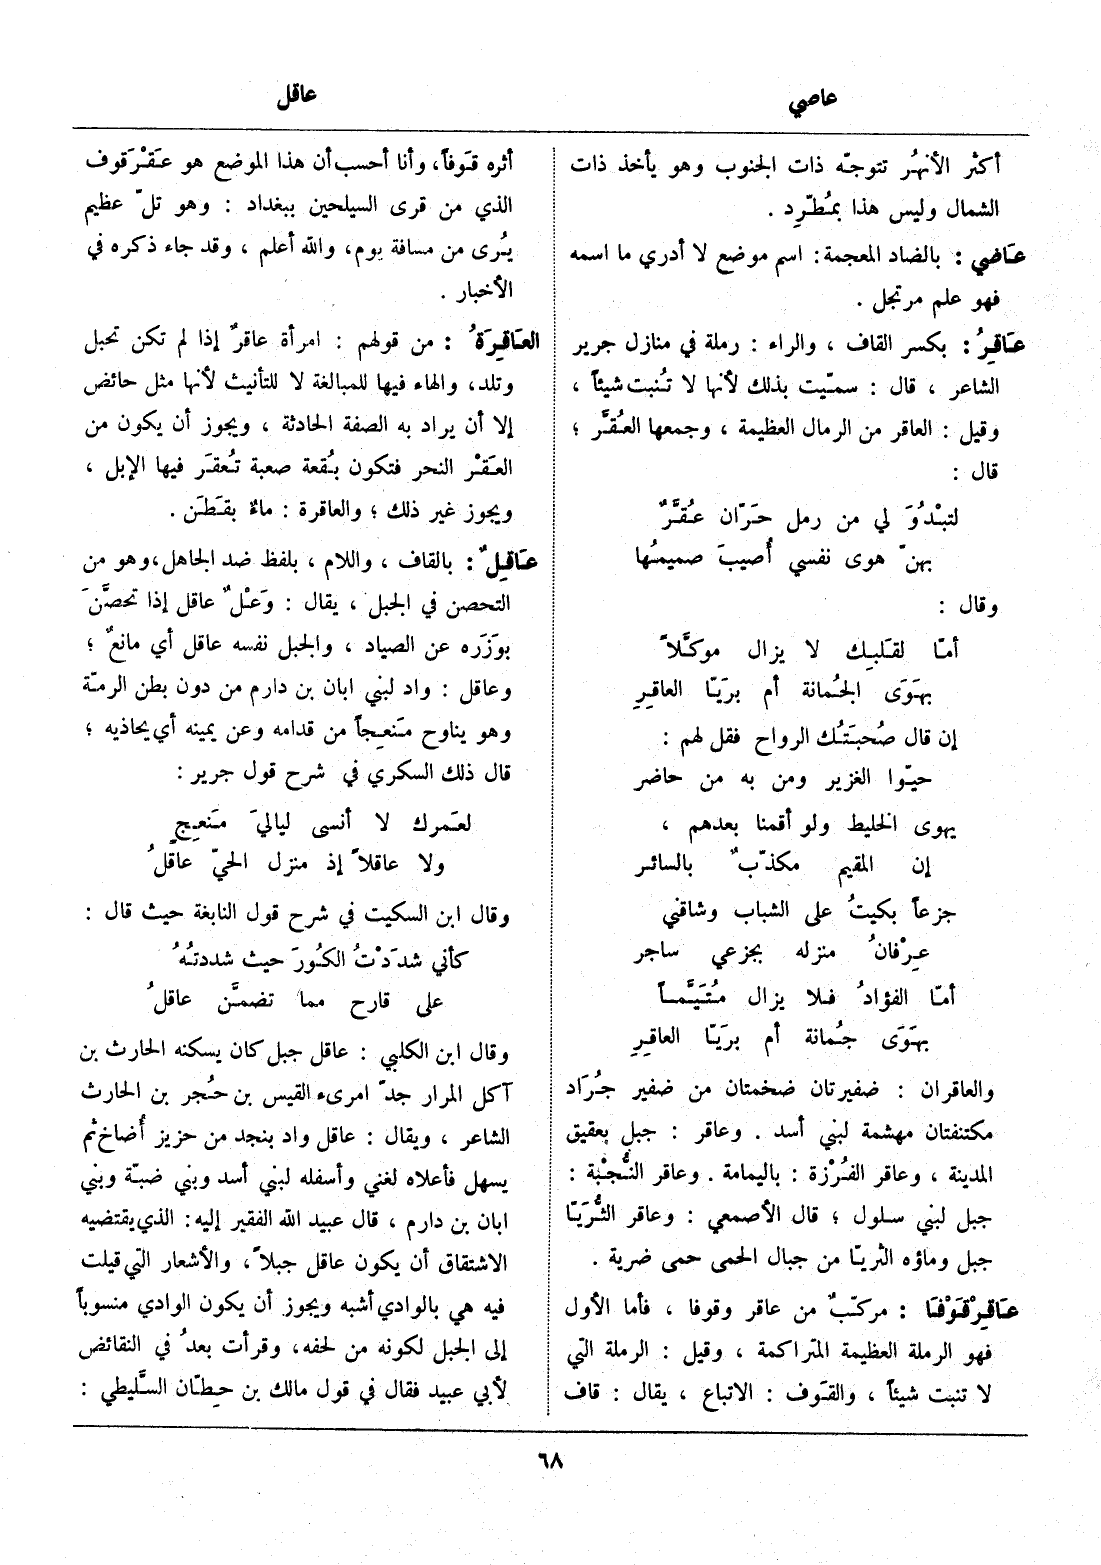 عاصي
عاقل
أكثر الأنهُر تتوجّه ذات الجنوب وهو يأخذ ذات
الشمال وليس هذا بمُطّرِد .
عَاضي : بالضاد المعجمة : اسم موضع لا أدري ما اسمه
فهو علم مرتجل .
عَاقِرُ : بكسر القاف ، والراء : رملة في منازل جرير
الشاعر ، قال : سمّيت بذلك لأنها لا تُنبت شيئاً ،
وقيل : العاقر من الرمال العظيمة ، وجمعها العُقَّر ؛
قال :
لتبْدُوَ لي من رمل حَرّان عُقَّرٌ
بهنّ هوى نفسي أُصيبَ صميمُها
وقال :
أمّا لقَلبِك لا يزال موكَّلاً
بهَوَى الجُمانة أم برَيّا العاقِرِ
إن قال صُحبَتُك الرواح فقل لهم :
حيّوا الغزير ومن به من حاضر
يهوى الخليط ولو أقمنا بعدهم ،
إن المقيم مكذّبٌ بالسائر
جزعاً بكيتُ على الشباب وشاقني
عِرْفانُ منزله بجزعي ساجر
أمّا الفؤادُ فلا يزال مُتَيَّماً
بهَوَى جُمانة أم برَيّا العاقِرِ
والعاقران : ضفيرتان ضخمتان من ضفير جُرَاد
مكتنفتان مهشمة لبني أسد . وعاقر : جبل بعقيق
المدينة ، وعاقر الفُرْزة : باليمامة . وعاقر النُّجْبة :
جبل لبني سلول ؛ قال الأصمعي : وعاقر الثُّرَيّا
جبل وماؤه الثريّا من جبال الحمى حمى ضرية .
عَاقِرْقَوْفَا : مركّبٌ من عاقر وقوفا ، فأما الأول
فهو الرملة العظيمة المتراكمة ، وقيل : الرملة التي
لا تنبت شيئاً ، والقَوف : الاتباع ، يقال : قاف
أثره قَوفاً ، وأنا أحسب أن هذا الموضع هو عَقْرَقوف
الذي من قرى السيلحين ببغداد : وهو تلّ عظيم
يُرى من مسافة يوم ، والله أعلم ، وقد جاء ذكره في
الأخبار .
العَاقِرَةُ : من قولهم : امرأة عاقرٌ إذا لم تكن تحبل
وتلد ، والهاء فيها للمبالغة لا للتأنيث لأنها مثل حائض
إلا أن يراد به الصفة الحادثة ، ويجوز أن يكون من
العَقْر النحر فتكون بُقعة صعبة تُعقَر فيها الإبل ،
ويجوز غير ذلك ؛ والعاقرة : ماءٌ بقَطَن .
عَاقِلٌ : بالقاف ، واللام ، بلفظ ضد الجاهل ، وهو من
التحصن في الجبل ، يقال : وَعْلٌ عاقل إذا تحصَّنَ
بوَزَره عن الصياد ، والجبل نفسه عاقل أي مانعٌ ؛
وعاقل : واد لبني ابان بن دارم من دون بطن الرمّة
وهو يناوح مَنعِجاً من قدامه وعن يمينه أي يحاذيه ؛
قال ذلك السكري في شرح قول جرير :
لعَمرك لا أنسى لياليَ مَنعِجٍ
ولا عاقلاً إذ منزل الحيّ عاقلُ
وقال ابن السكيت في شرح قول النابغة حيث قال :
كأني شدَدْتُ الكُورَ حيث شددتُهُ
على قارح مما تضمَّن عاقلُ
وقال ابن الكلبي : عاقل جبل كان يسكنه الحارث بن
آكل المرار جدّ امرىء القيس بن حُجر بن الحارث
الشاعر ، ويقال : عاقل واد بنجد من حزيز أُضاخ ثم
يسهل فأعلاه لغني وأسفله لبني أسد وبني ضبّة وبني
ابان بن دارم ، قال عبيد الله الفقير إليه : الذي يقتضيه
الاشتقاق أن يكون عاقل جبلاً ، والأشعار التي قيلت
فيه هي بالوادي أشبه ويجوز أن يكون الوادي منسوباً
إلى الجبل لكونه من لحفه ، وقرأت بعدُ في النقائض
لأبي عبيد فقال في قول مالك بن حِطّان السَّليطي :
٦٨